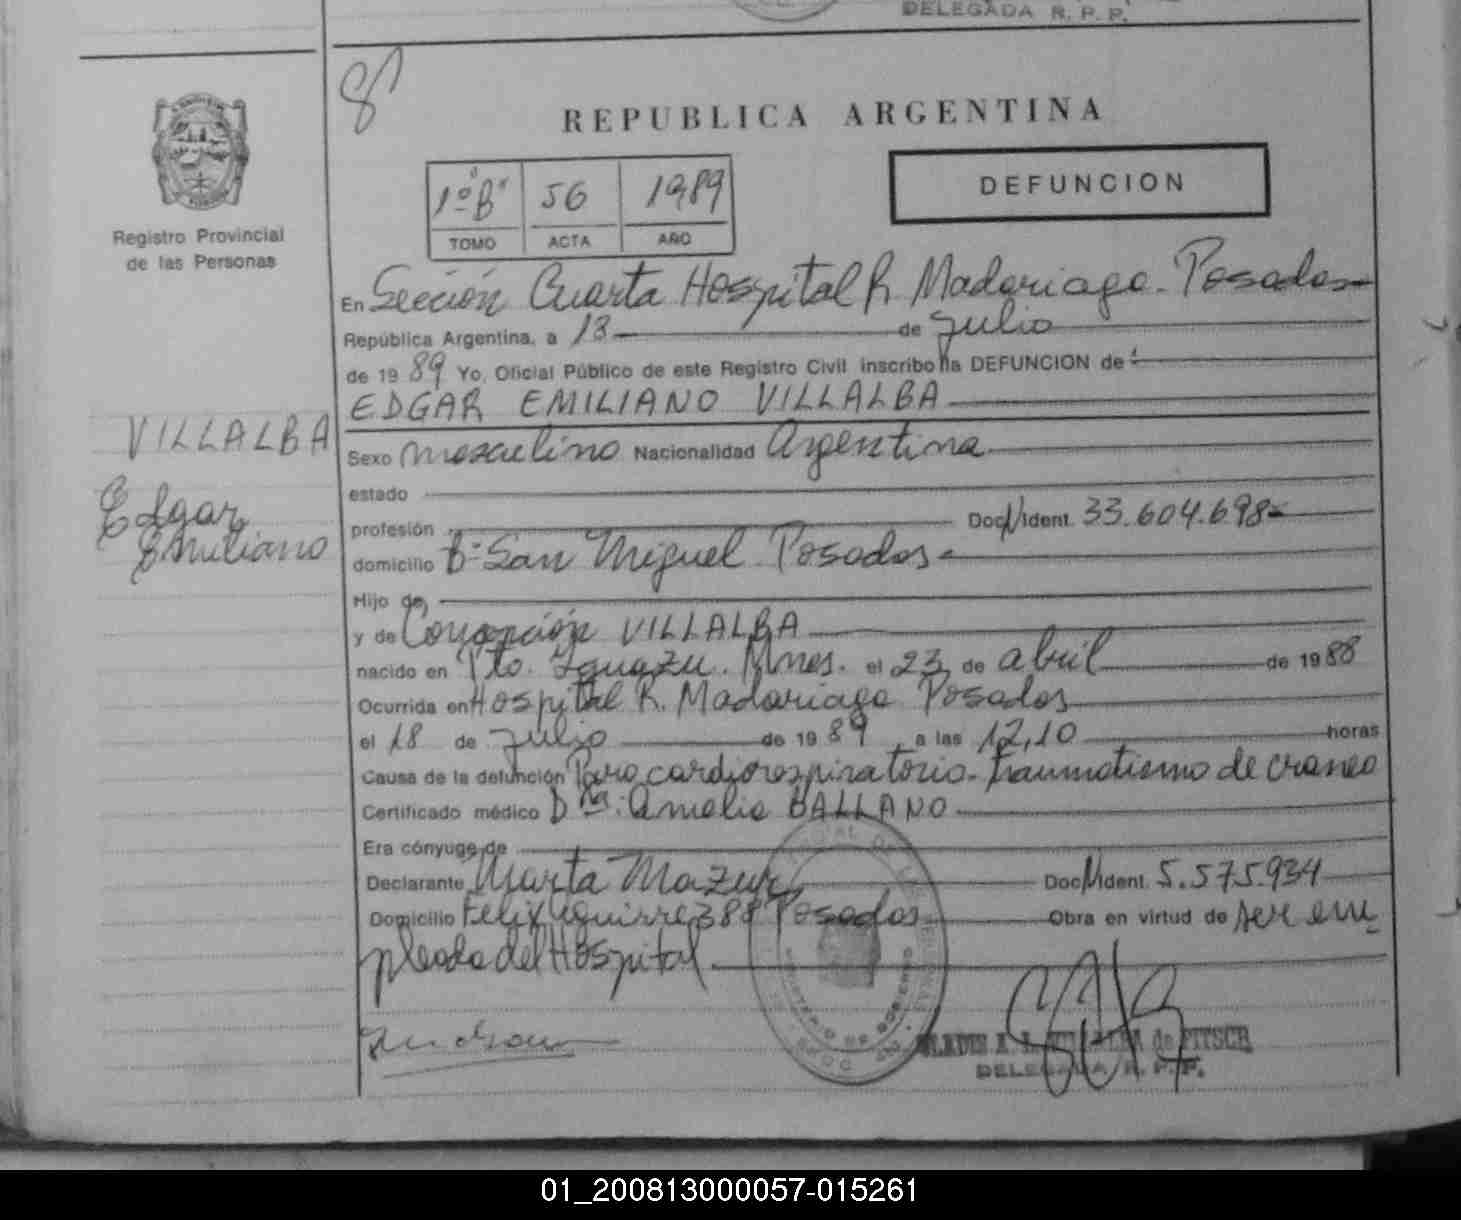 DELEGADA R. P. P.
8
REPUBLICA ARGENTINA
1º "B" 56 1989
TOMO ACTA AÑO
DEFUNCION
Registro Provincial
de las Personas
En Sección Cuarta Hospital R. Madariaga - Posadas
República Argentina, a 18 de Julio
de 1989 Yo, Oficial Público de este Registro Civil inscribo la DEFUNCION de:
EDGAR EMILIANO VILLALBA
VILLALBA
Edgar
Emiliano
Sexo masculino Nacionalidad Argentina
estado
profesión Doc. N ident. 33.604.698-
domicilio Bº San Miguel Posadas -
Hijo de
y de Concepción VILLALBA
nacido en Pto. Iguazu. Mnes. el 23 de abril de 1988
Ocurrida en Hospital R. Madariaga Posados
el 18 de Julio de 1989 a las 12,10 horas
Causa de la defunción Paro cardiorespiratorio - traumatismo de craneo
Certificado médico Dra. Amelia BALLANO
Era cónyuge de
Declarante Marta Mazur Doc. N ident. 5.575.934
Domicilio Felix Aguirre 388 Posadas Obra en virtud de ser em
pleada del Hospital
GLADIS A. L. VILLALBA de PITSCH
DELEGADA R. P. P.
01_200813000057-015261